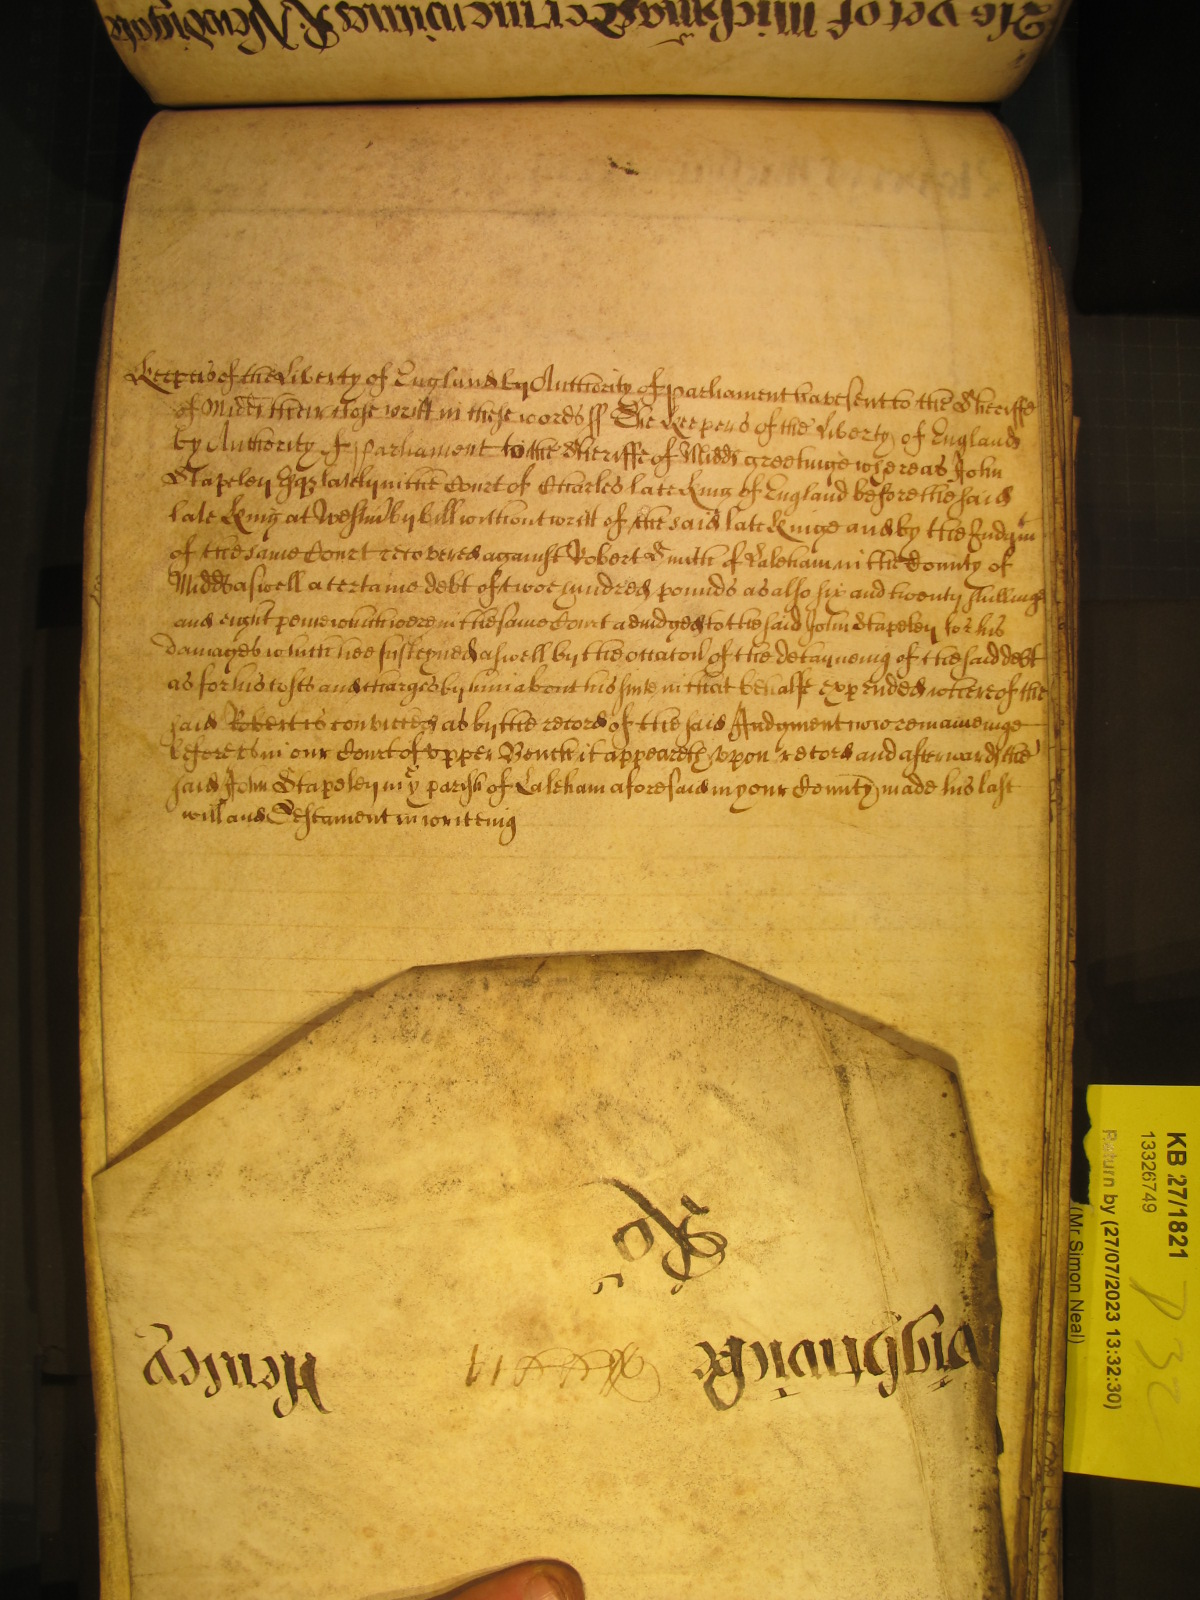 Yet of Michmas Terme wittnes R. Newdigate
Keepers of the Liberty of England by Authority of parliament have sent to the Sheriffe
of Midds their close writt in these words ss The Keepers of the Liberty of England
by Authority of parliament to the Sheriffe of Midds greetinge whereas John
Stapeley Esqr lately in the Court of Charles late King of England before the said
late King at Westm by bill without writt of the said late Kinge and by the Judgmt
of the same Court recovered against Robert Smith of Laleham in the County of
Midds aswell a certaine debt of twoe hundred pounds as also six and twenty shillings
and eight pence which were in the same Court adiudged to the said John Stapeley for his
damages which hee susteyned aswell by the occacon of the deteyneing of the said debt
as for his costs and charges by him about his suite in that behalfe expended whereof the
said Robert is convicted as by the record of the said Judgment now remaineinge
before us in our Court of upper Bench it appeareth upon record and afterwards the
said John Stapeley in ye parish of Laleham aforesaid in your County made his last
will and Testament in writteing
Ro
Wightwicke
Henley
KB 27/1821
13326749
Return by (27/07/2023 13:32:30)
(Mr Simon Neal)
P 32